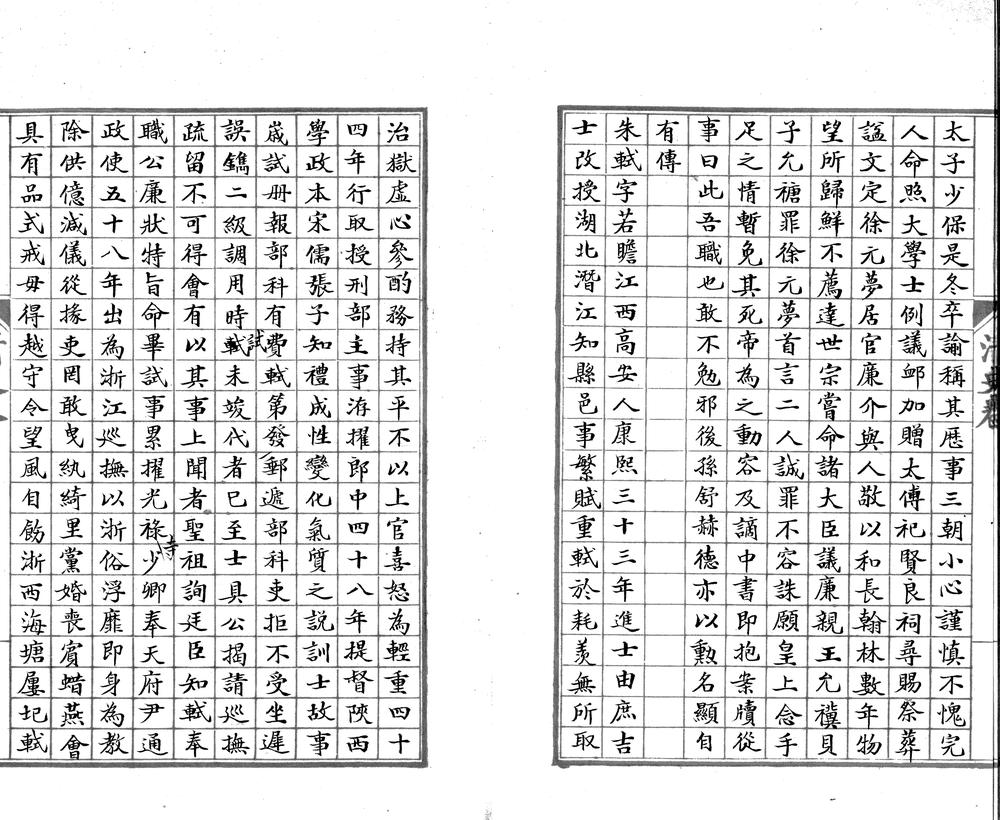 太子少保是冬卒諭稱其歷事三朝小心謹慎不愧完
人命照大學士例議卹加贈太傅祀賢良祠尋賜祭葬
諡文定徐元夢居官廉介與人敬以和長翰林數年物
望所歸鮮不薦達世宗嘗命諸大臣議廉親王允禩貝
子允禟罪徐元夢首言二人誠罪不容誅願皇上念手
足之情暫免其死帝為之動容及謫中書即抱案牘從
事曰此吾職也敢不勉邪後孫舒赫德亦以勳名顯自
有傳
朱軾字若瞻江西高安人康熙三十三年進士由庶吉
士改授湖北潛江知縣邑事繁賦重軾於耗羨無所取
治獄虛心參酌務持其平不以上官喜怒為輕重四十
四年行取授刑部主事洊擢郎中四十八年提督陝西
學政本宋儒張子知禮成性變化氣質之說訓士故事
歲試册報部科有費軾第發郵遞部科吏拒不受坐遲
誤鐫二級調用時軾試未竣代者已至士具公揭請巡撫
疏留不可得會有以其事上聞者聖祖詢廷臣知軾奉
職公廉狀特旨命畢試事累擢光祿寺少卿奉天府尹通
政使五十八年出為浙江巡撫以浙俗浮靡即身為教
除供億減儀從掾吏罔敢曳紈綺里黨婚喪賓蜡燕會
具有品式戒毋得越守令望風自飭浙西海塘屢圮軾